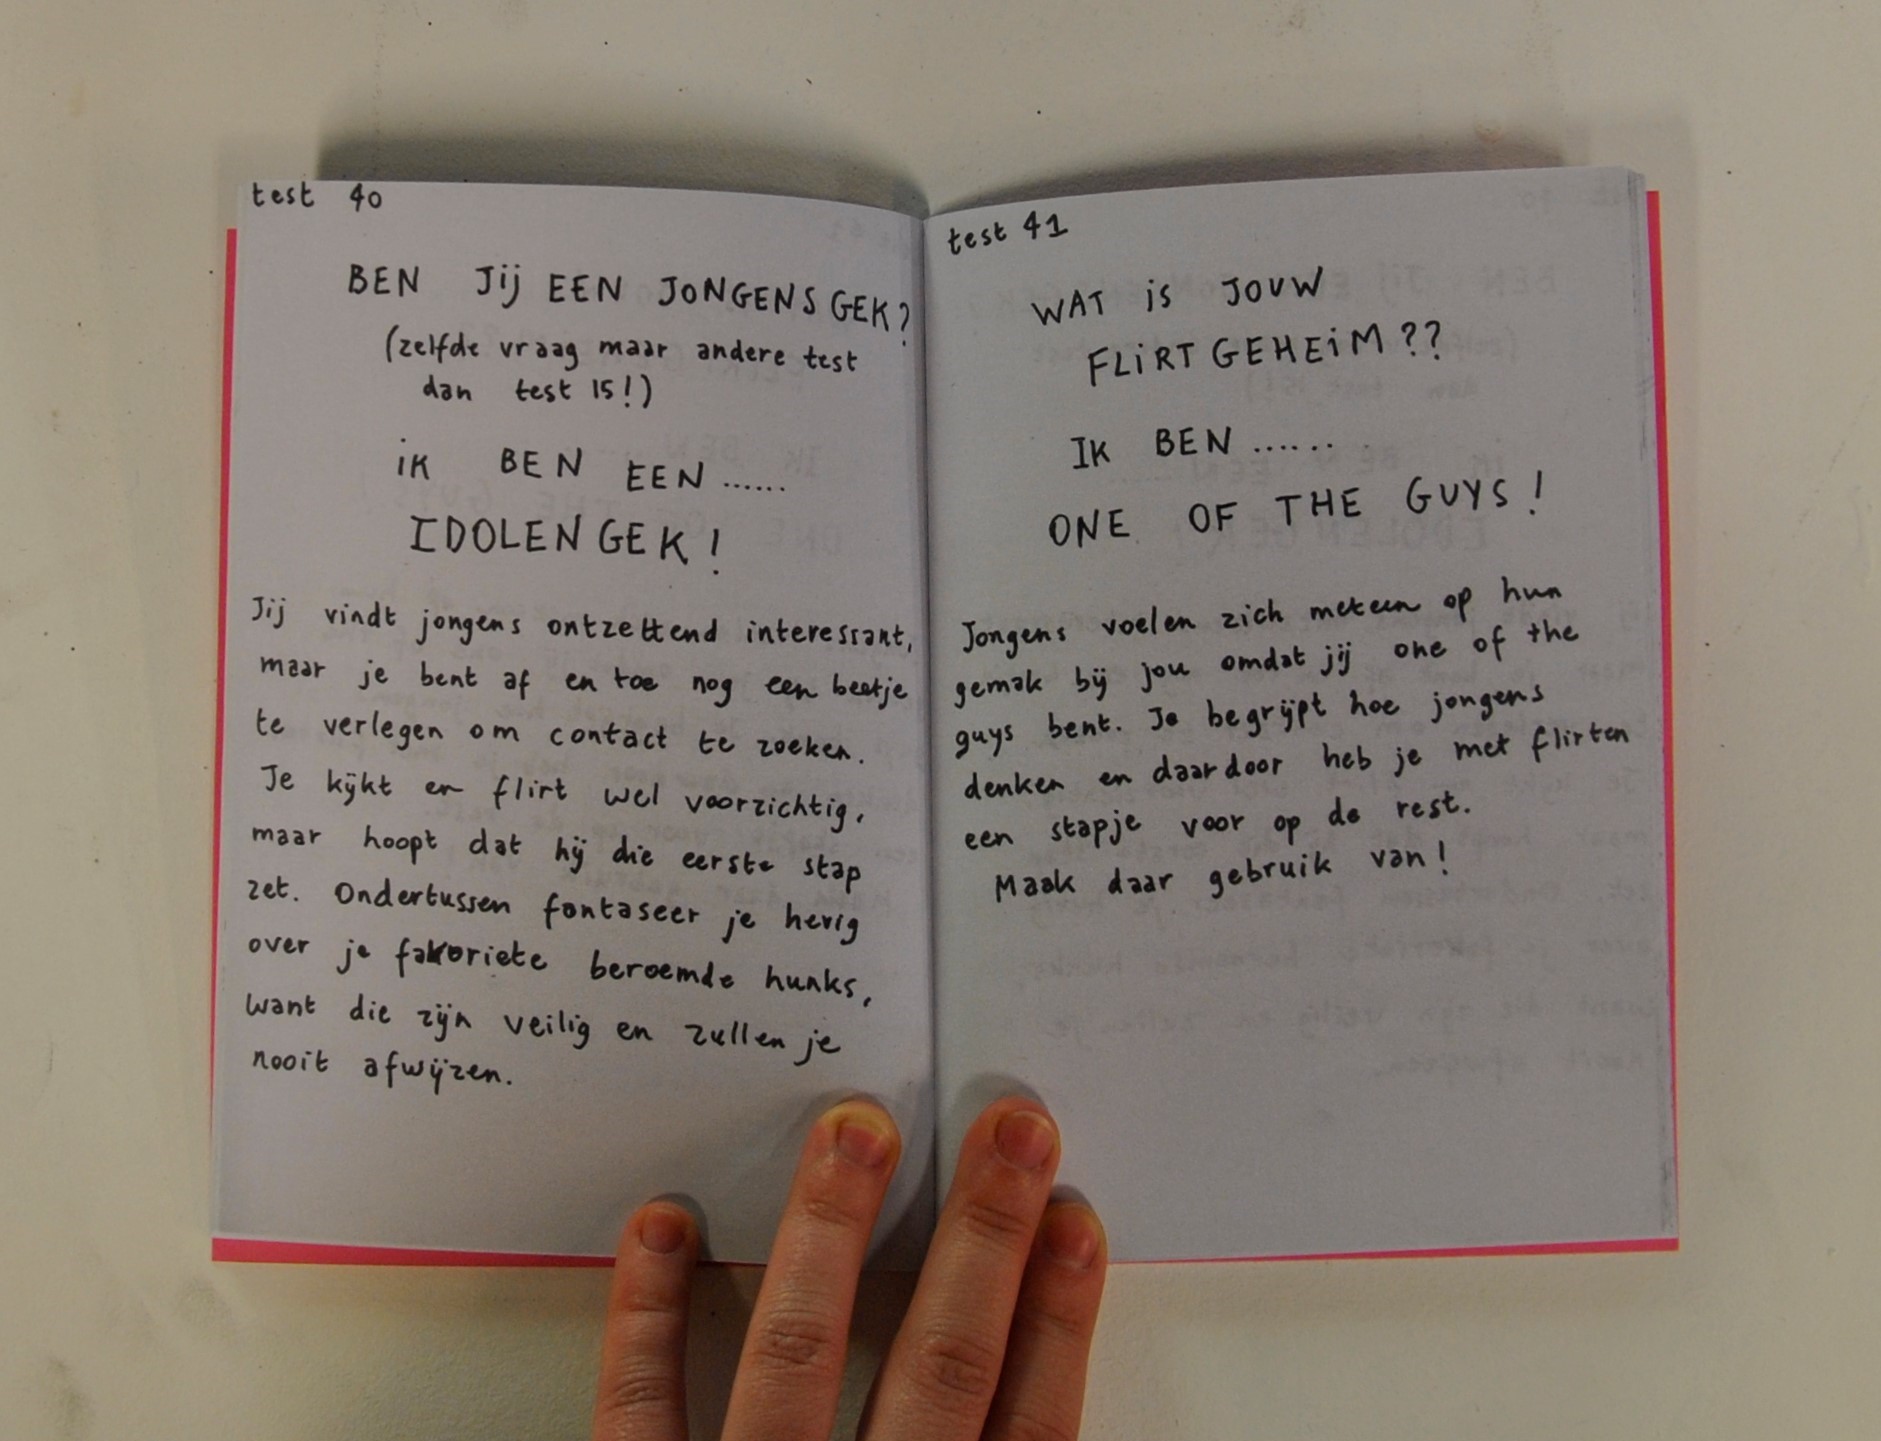 test 40
BEN Jij EEN JONGENSGEK?
(zelfde vraag maar andere test
dan test 15!)
iK BEN EEN ......
IDOLENGEK!
Jij vindt jongens ontzettend interessant,
maar je bent af en toe nog een beetje
te verlegen om contact te zoeken.
Je kijkt en flirt wel voorzichtig,
maar hoopt dat hij die eerste stap
zet. Ondertussen fantaseer je hevig
over je favoriete beroemde hunks,
want die zijn veilig en zullen je
nooit afwijzen.
test 41
WAT is JOUW
FLiRTGEHEiM??
IK BEN ......
ONE OF THE GUYS!
Jongens voelen zich meteen op hun
gemak bij jou omdat jij one of the
guys bent. Je begrijpt hoe jongens
denken en daardoor heb je met flirten
een stapje voor op de rest.
Maak daar gebruik van!